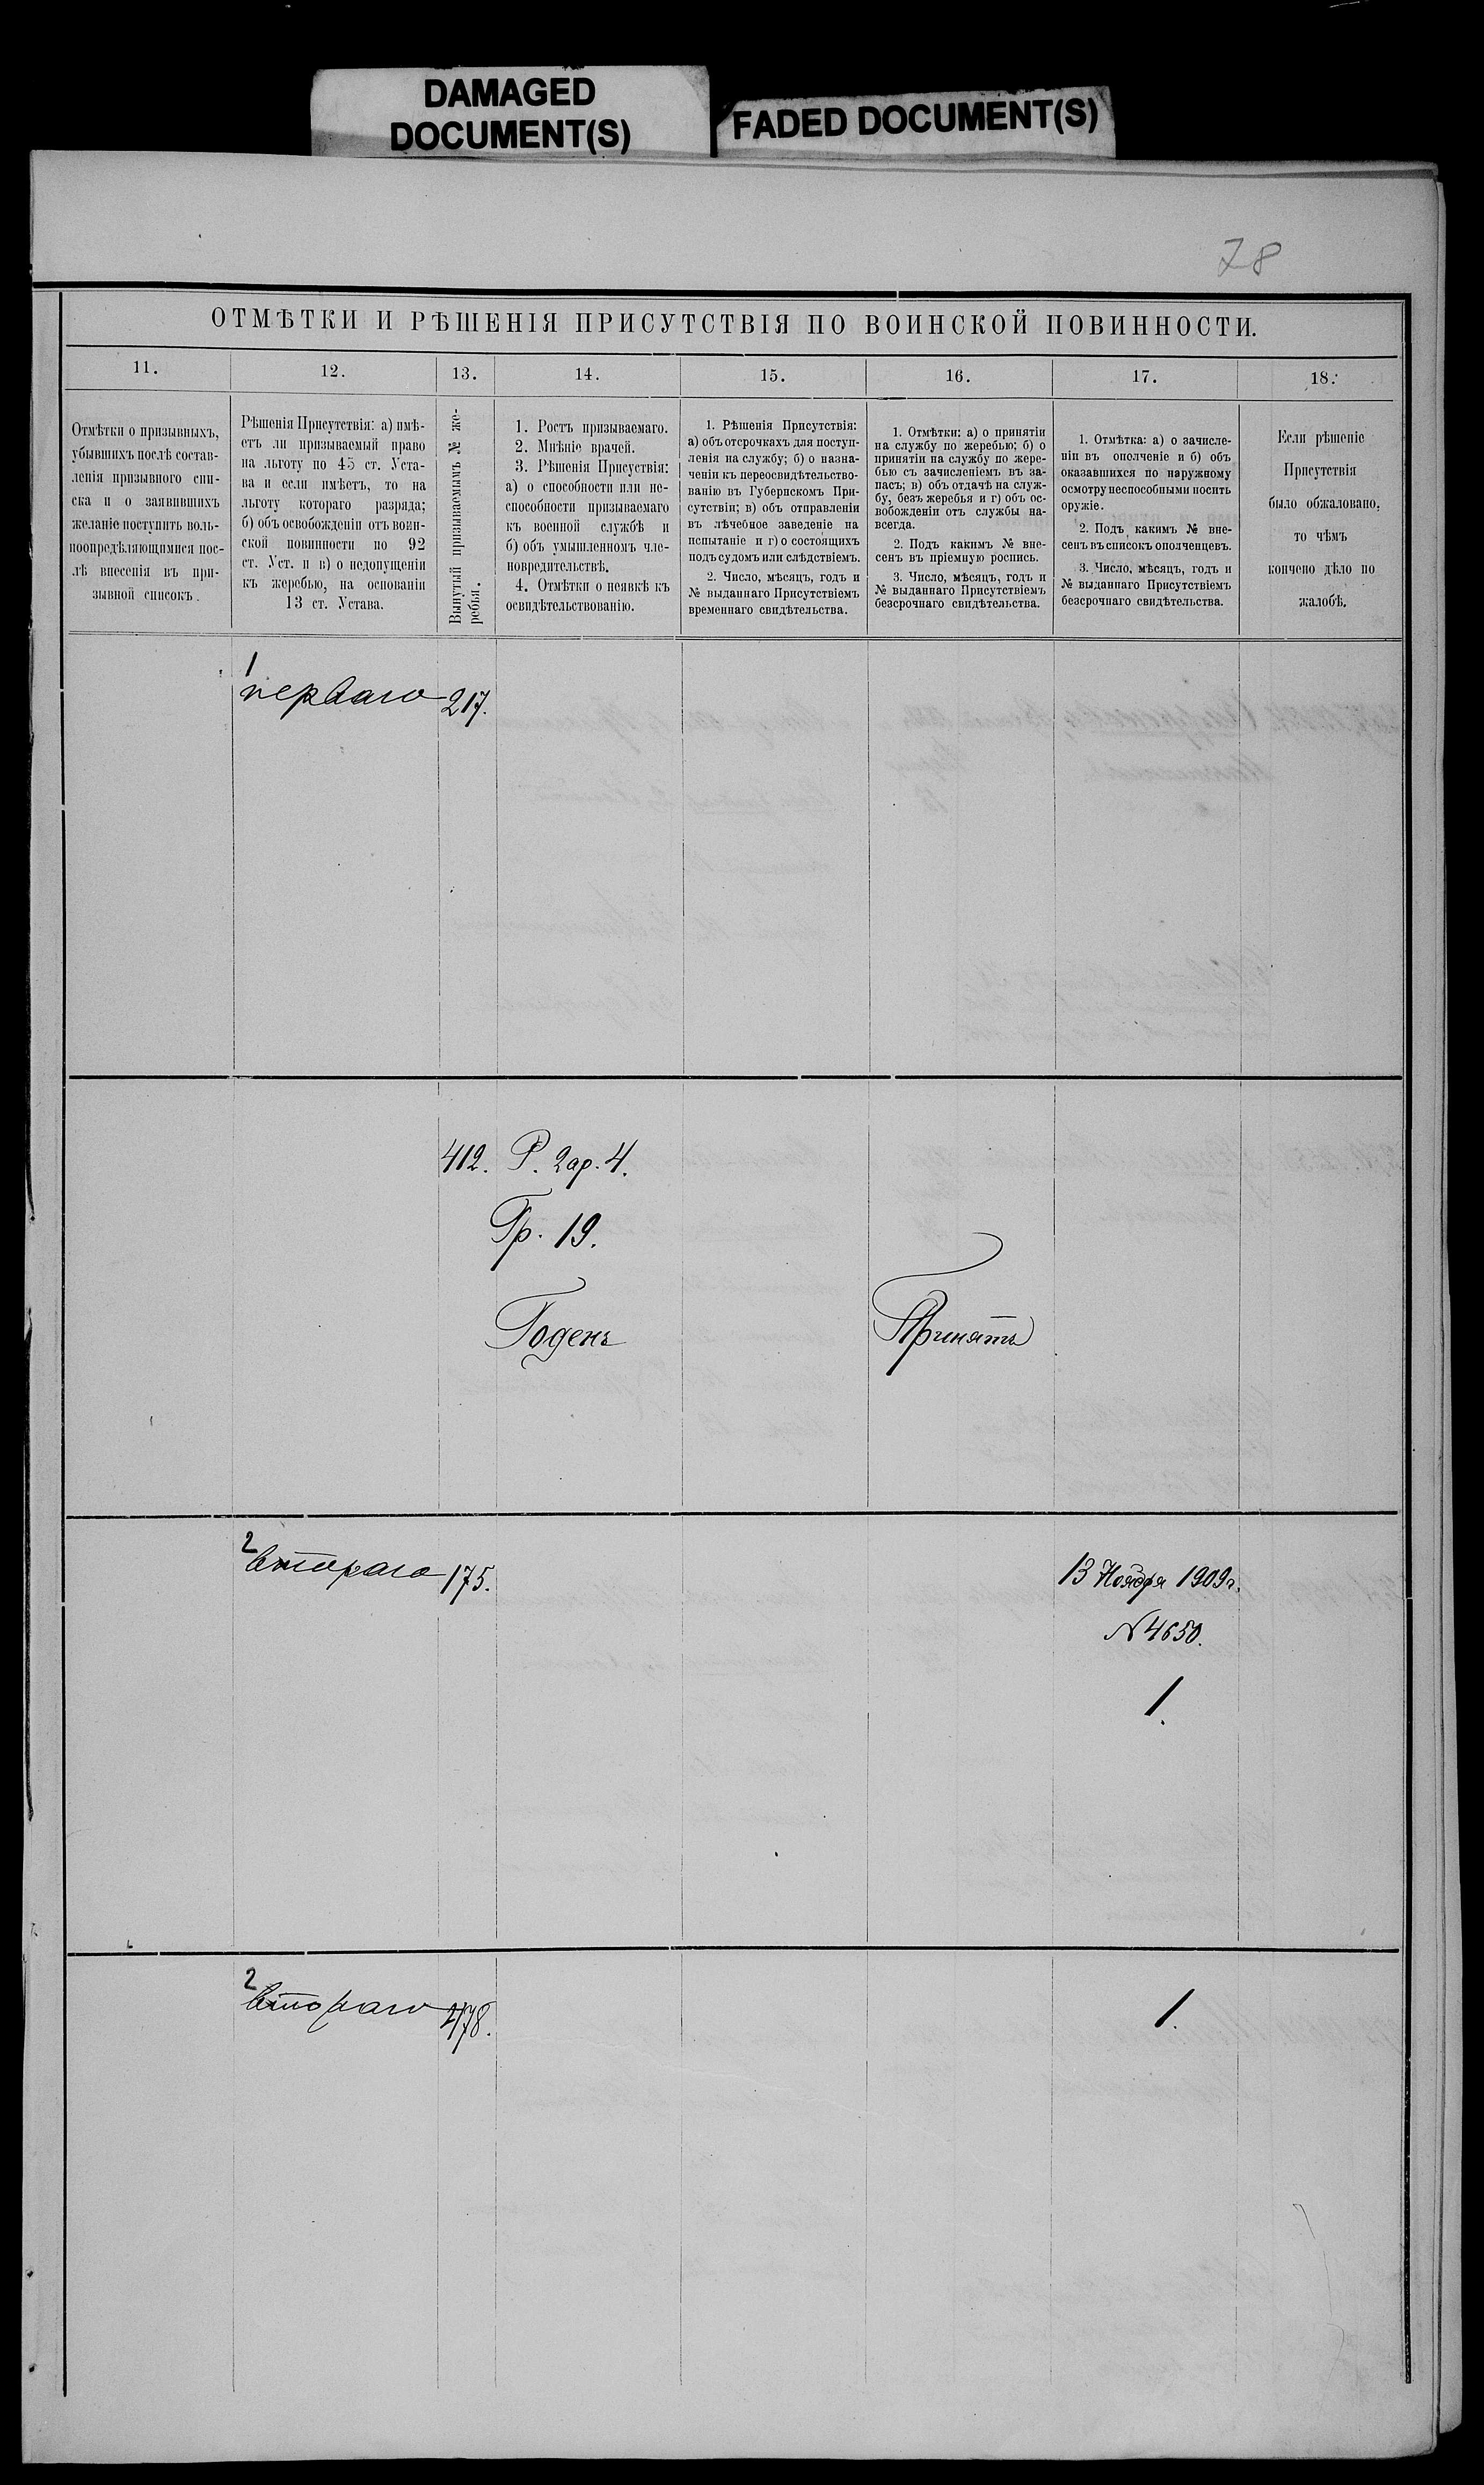 DAMAGED
DOCUMENT(S)
FADED DOCUMENT(S)
78
ОТМѢТКИ И РѢШЕНІЯ ПРИСУТСТВІЯ ПО ВОИНСКОЙ ПОВИННОСТИ.
11.
12.
13.
14.
15.
16.
17.
18.
Отмѣтки о призывныхъ,
убывшихъ послѣ состав-
ленія призывного спи-
ска и о заявившихъ
желаніе поступить воль-
ноопредѣляющимися пос-
лѣ внесенія въ при-
зывной списокъ.
Рѣшенія Присутствія: а) имѣ-
етъ ли призываемый право
на льготу по 45 ст. Уста-
ва и если имѣетъ, то на
льготу котораго разряда;
б) объ освобожденіи отъ воин-
ской повинности по 92
ст. Уст. и в) о недопущеніи
къ жеребью, на основаніи
13 ст. Устава.
Вынутый призываемымъ № же-
ребья.
1. Ростъ призываемаго.
2. Мнѣніе врачей.
3. Рѣшенія Присуствія:
а) о способности или не-
способности призываемаго
къ военной службѣ и
б) объ умышленномъ чле-
новредительствѣ.
4. Отмѣтки о неявкѣ къ
освидѣтельствованію.
1. Рѣшенія Присутствія:
а) объ отсрочкахъ для поступ-
ленія на службу; б) о назна-
ченіи къ переосвидѣтельство-
ванію въ Губернскомъ При-
сутствіи; в) объ отправленіи
въ лѣчебное заведеніе на
испытаніе и г) о состоящихъ
подъ судомъ или слѣдствіемъ.
2. Число, мѣсяцъ, годъ и
№ выданнаго Присутствіемъ
временнаго свидѣтельства.
1. Отмѣтки: а) о принятіи
на службу по жеребью; б) о
принятіи на службу по жере-
бью съ зачисленіемъ въ за-
пасъ; в) объ отдачѣ на служ-
бу, безъ жеребья и г) объ ос-
вобожденіи отъ службы на-
всегда.
2. Подъ какимъ № вне-
сенъ въ пріемную роспись.
3. Число, мѣсяцъ, годъ и
№ выданнаго Присутствіемъ
безсрочнаго свидѣтельства.
1. Отмѣтка: а) о зачисле-
ніи въ ополченіе и б) объ
оказавшихся по наружному
осмотру неспособными носить
оружіе.
2. Подъ какимъ № вне-
сенъ въ списокъ ополченцевъ.
3. Число, мѣсяцъ, годъ и
№ выданнаго Присутствіемъ
безсрочнаго свидѣтельства.
Если рѣшеніе
Присутствія
было обжаловано,
то чѣмъ
кончено дѣло по
жалобѣ.
1
перваго 217.
412. Р. 2 ар. 4.
Гр. 19.
Годенъ
Принятъ
2
втораго 175.
13 Ноября 1909 г.
№ 4650.
1.
2
втораго 178.
1.